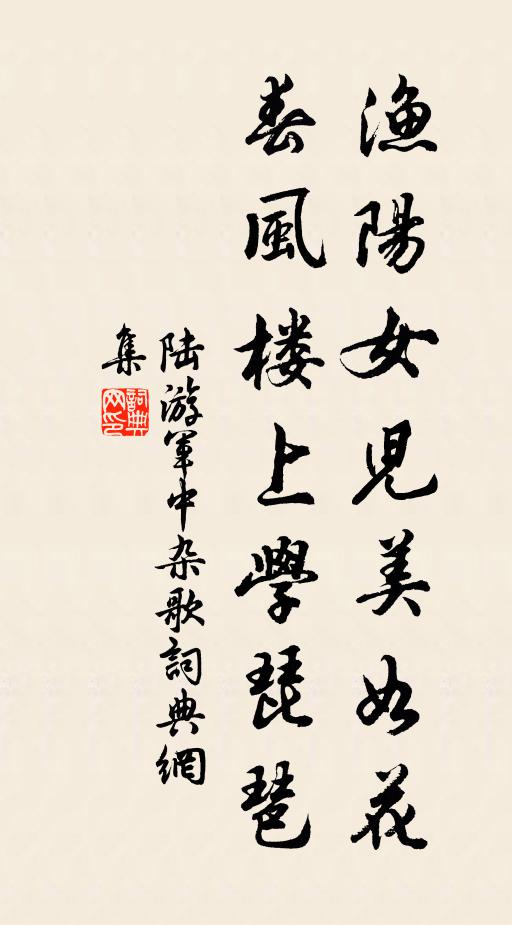 漁陽女児美如花
春風楼上學琵琶
陆游军中杂歌詞典網
集
詞典
网印